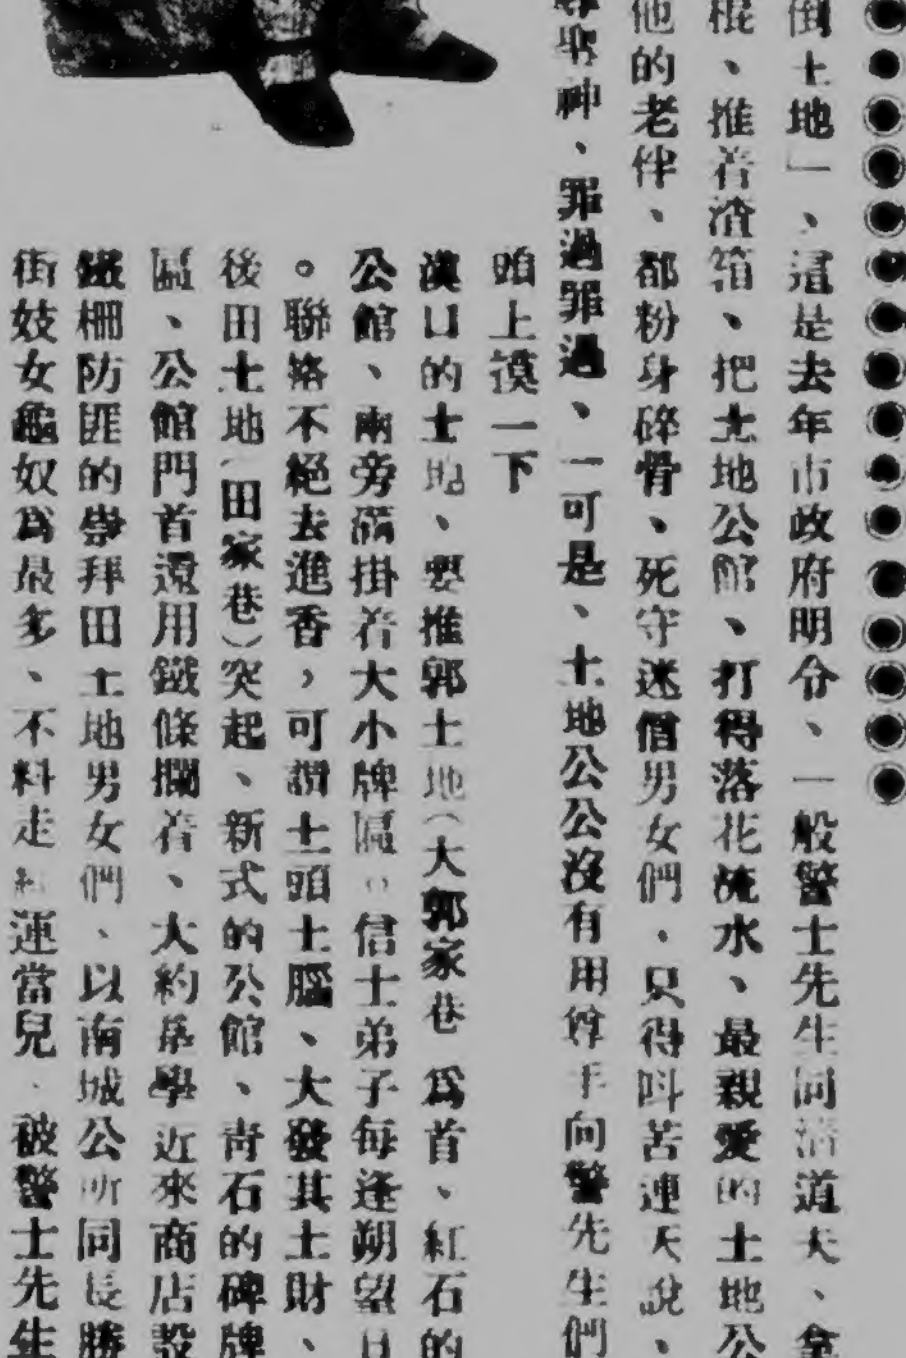 倒土地」、這是去年市政府明令、一般警士先生同清道夫、拿
棍、推着渣箱、把土地公館、打得落花流水、最親愛的土地公
他的老伴、都粉身碎骨、死守迷信男女們、只得叫苦連天說、
尊神、罪過罪過、一可是、土地公公沒有用尊手向警先生們
頭上摸一下
漢口的土地、要推郭土地（大郭家巷 爲首、紅石的
公館、兩旁滿掛着大小牌匾。信士弟子每逢朔望日
。聯絡不絕去進香，可謂土頭土腦、大發其土財、
後田土地（田家巷）突起、新式的公館、靑石的碑牌
區、公館門首還用鐵條攔着、大約是學近來商店設
鐵柵防匪的崇拜田土地男女們、以南城公所同長勝
街妓女龜奴爲最多、不料走紅運當兒、被警士先生